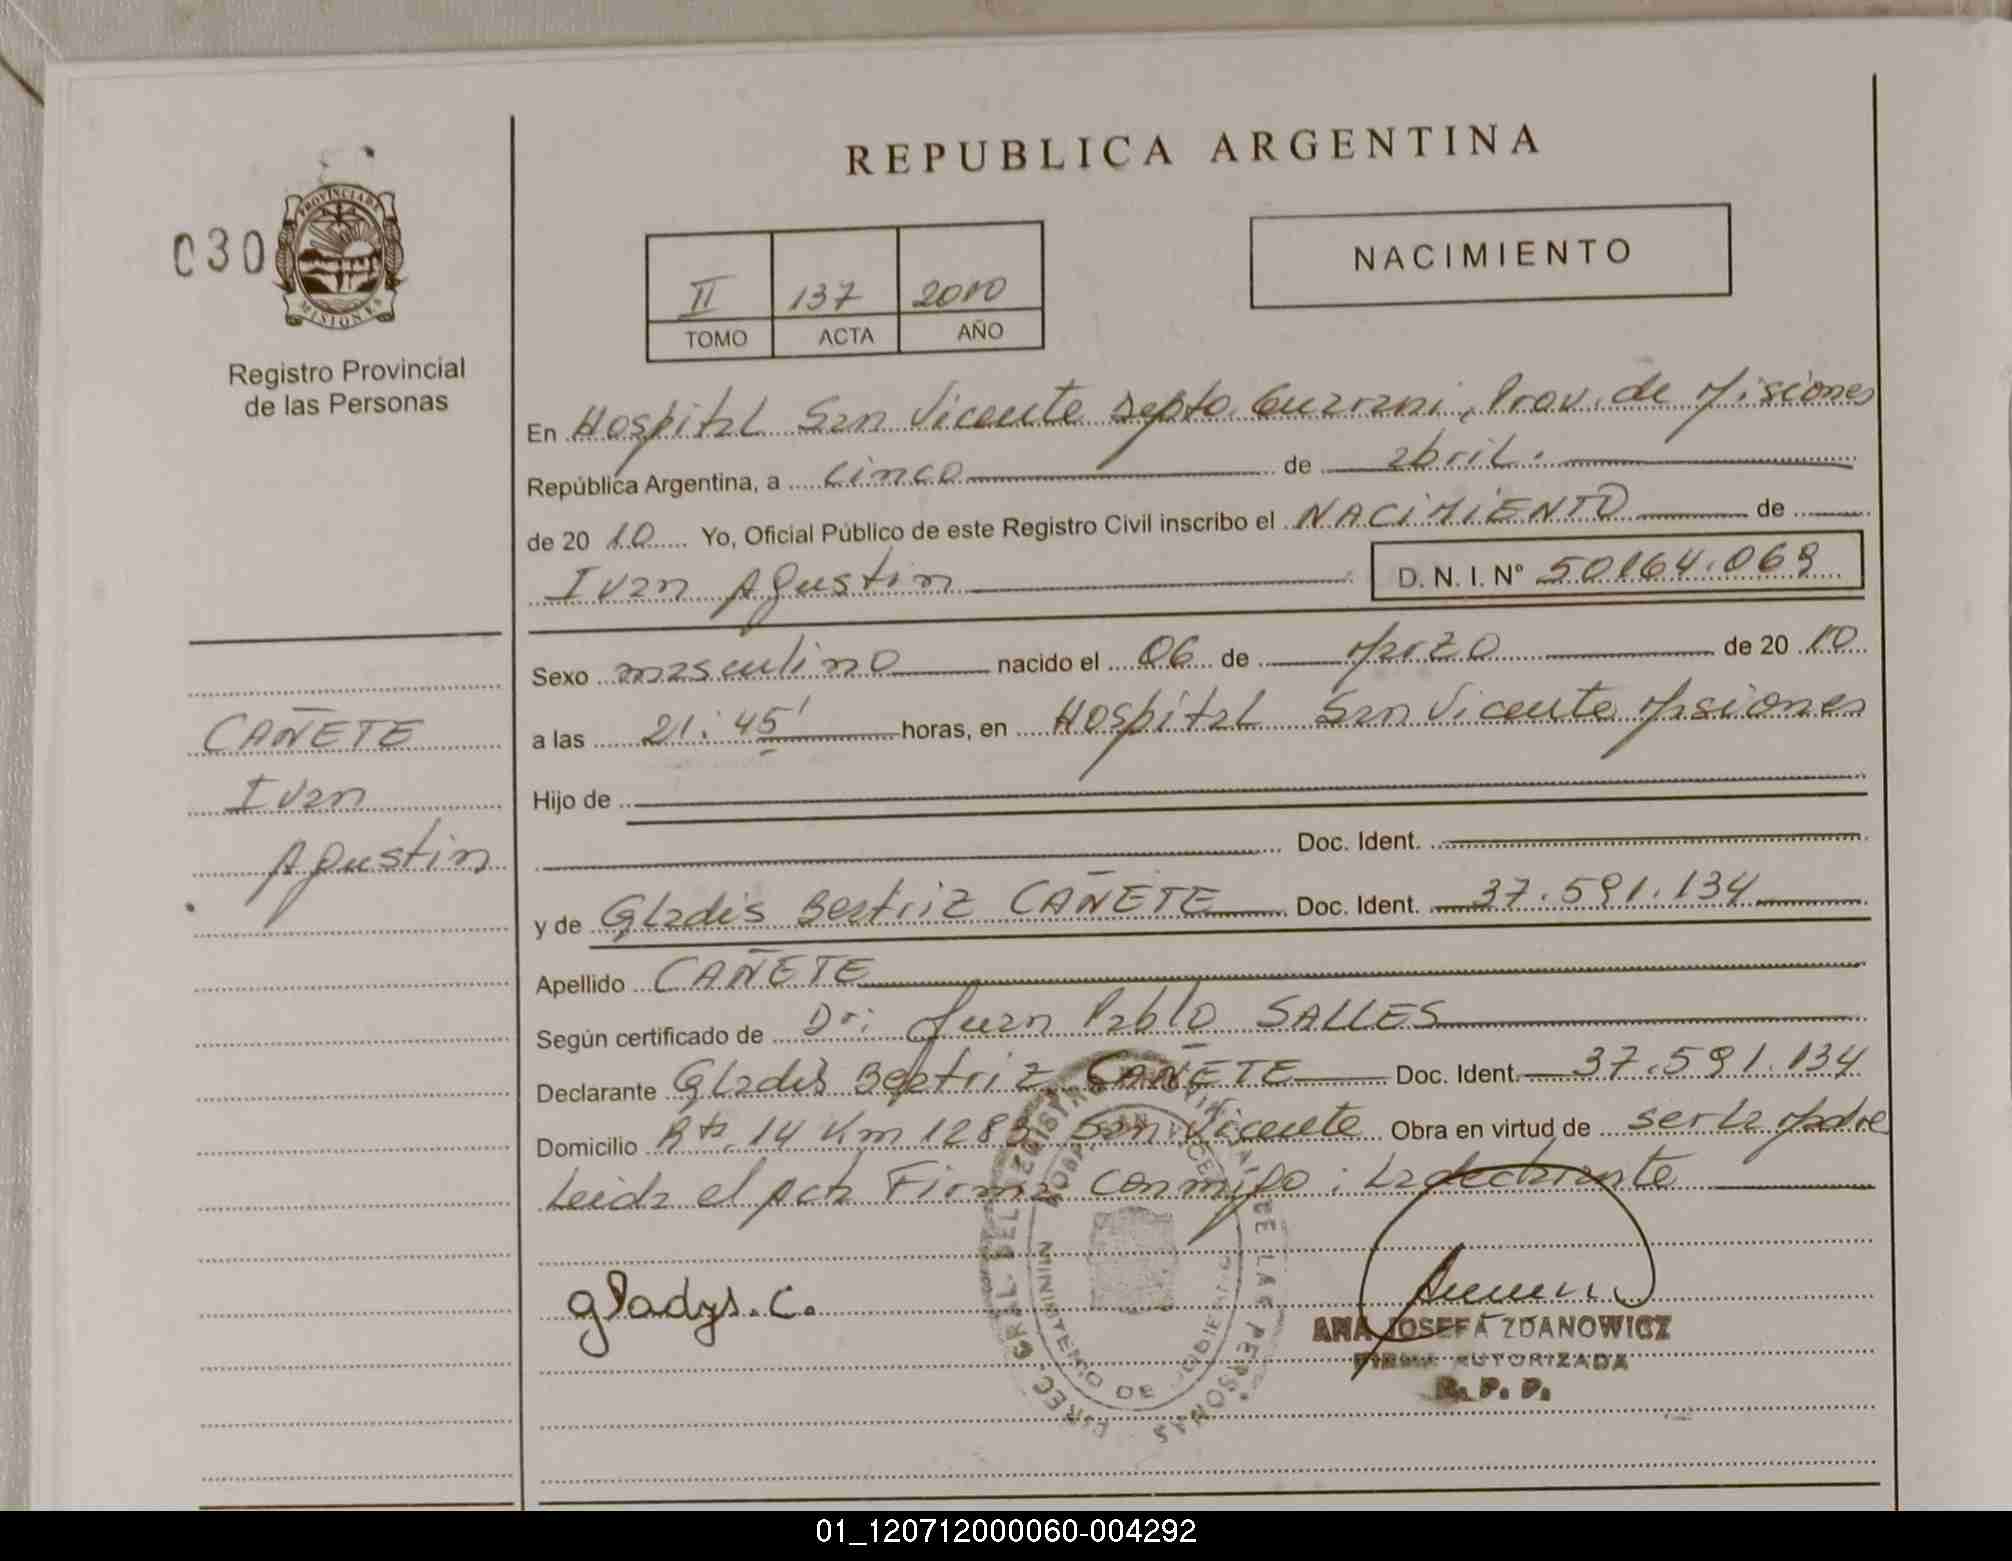 REPUBLICA ARGENTINA
030
PROVINCIA DE
MISIONES
Registro Provincial
de las Personas
II 137 2010
TOMO ACTA AÑO
NACIMIENTO
En Hospital San Vicente Depto Guarani, Prov. de Misiones
República Argentina, a cinco de abril.
de 2010 Yo, Oficial Público de este Registro Civil inscribo el NACIMIENTO de
Ivan Agustin D. N. I. Nº 50164.069
Sexo masculino nacido el 06 de Marzo de 2010
a las 21:45' horas, en Hospital San Vicente Misiones
Hijo de
Doc. Ident.
y de Gladis Beatriz CAÑETE Doc. Ident. 37.591.134
Apellido CAÑETE
Según certificado de Dr: Juan Pablo SALLES
Declarante Gladis Beatriz CAÑETE Doc. Ident. 37.591.134
Domicilio Rta. 14 Km 1283 San Vicente Obra en virtud de ser la Madre
Leida el Acta Firma conmigo: La declarante
CAÑETE
Ivan
Agustin
gladys. C.
ANA JOSEFA ZDANOWICZ
FIRMA AUTORIZADA
R. P. P.
DIREC. GRAL. DEL REGISTRO PROVINCIAL DE LAS PERSONAS
MINISTERIO DE GOBIERNO
01_120712000060-004292